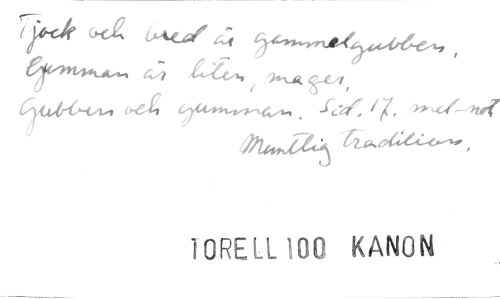 Tjock och bred är gammelgubben,
Gumman är liten, mager,
Gubben och gumman. Sid. 17. mel-not
Muntlig tradition.
TORELL 100 KANON